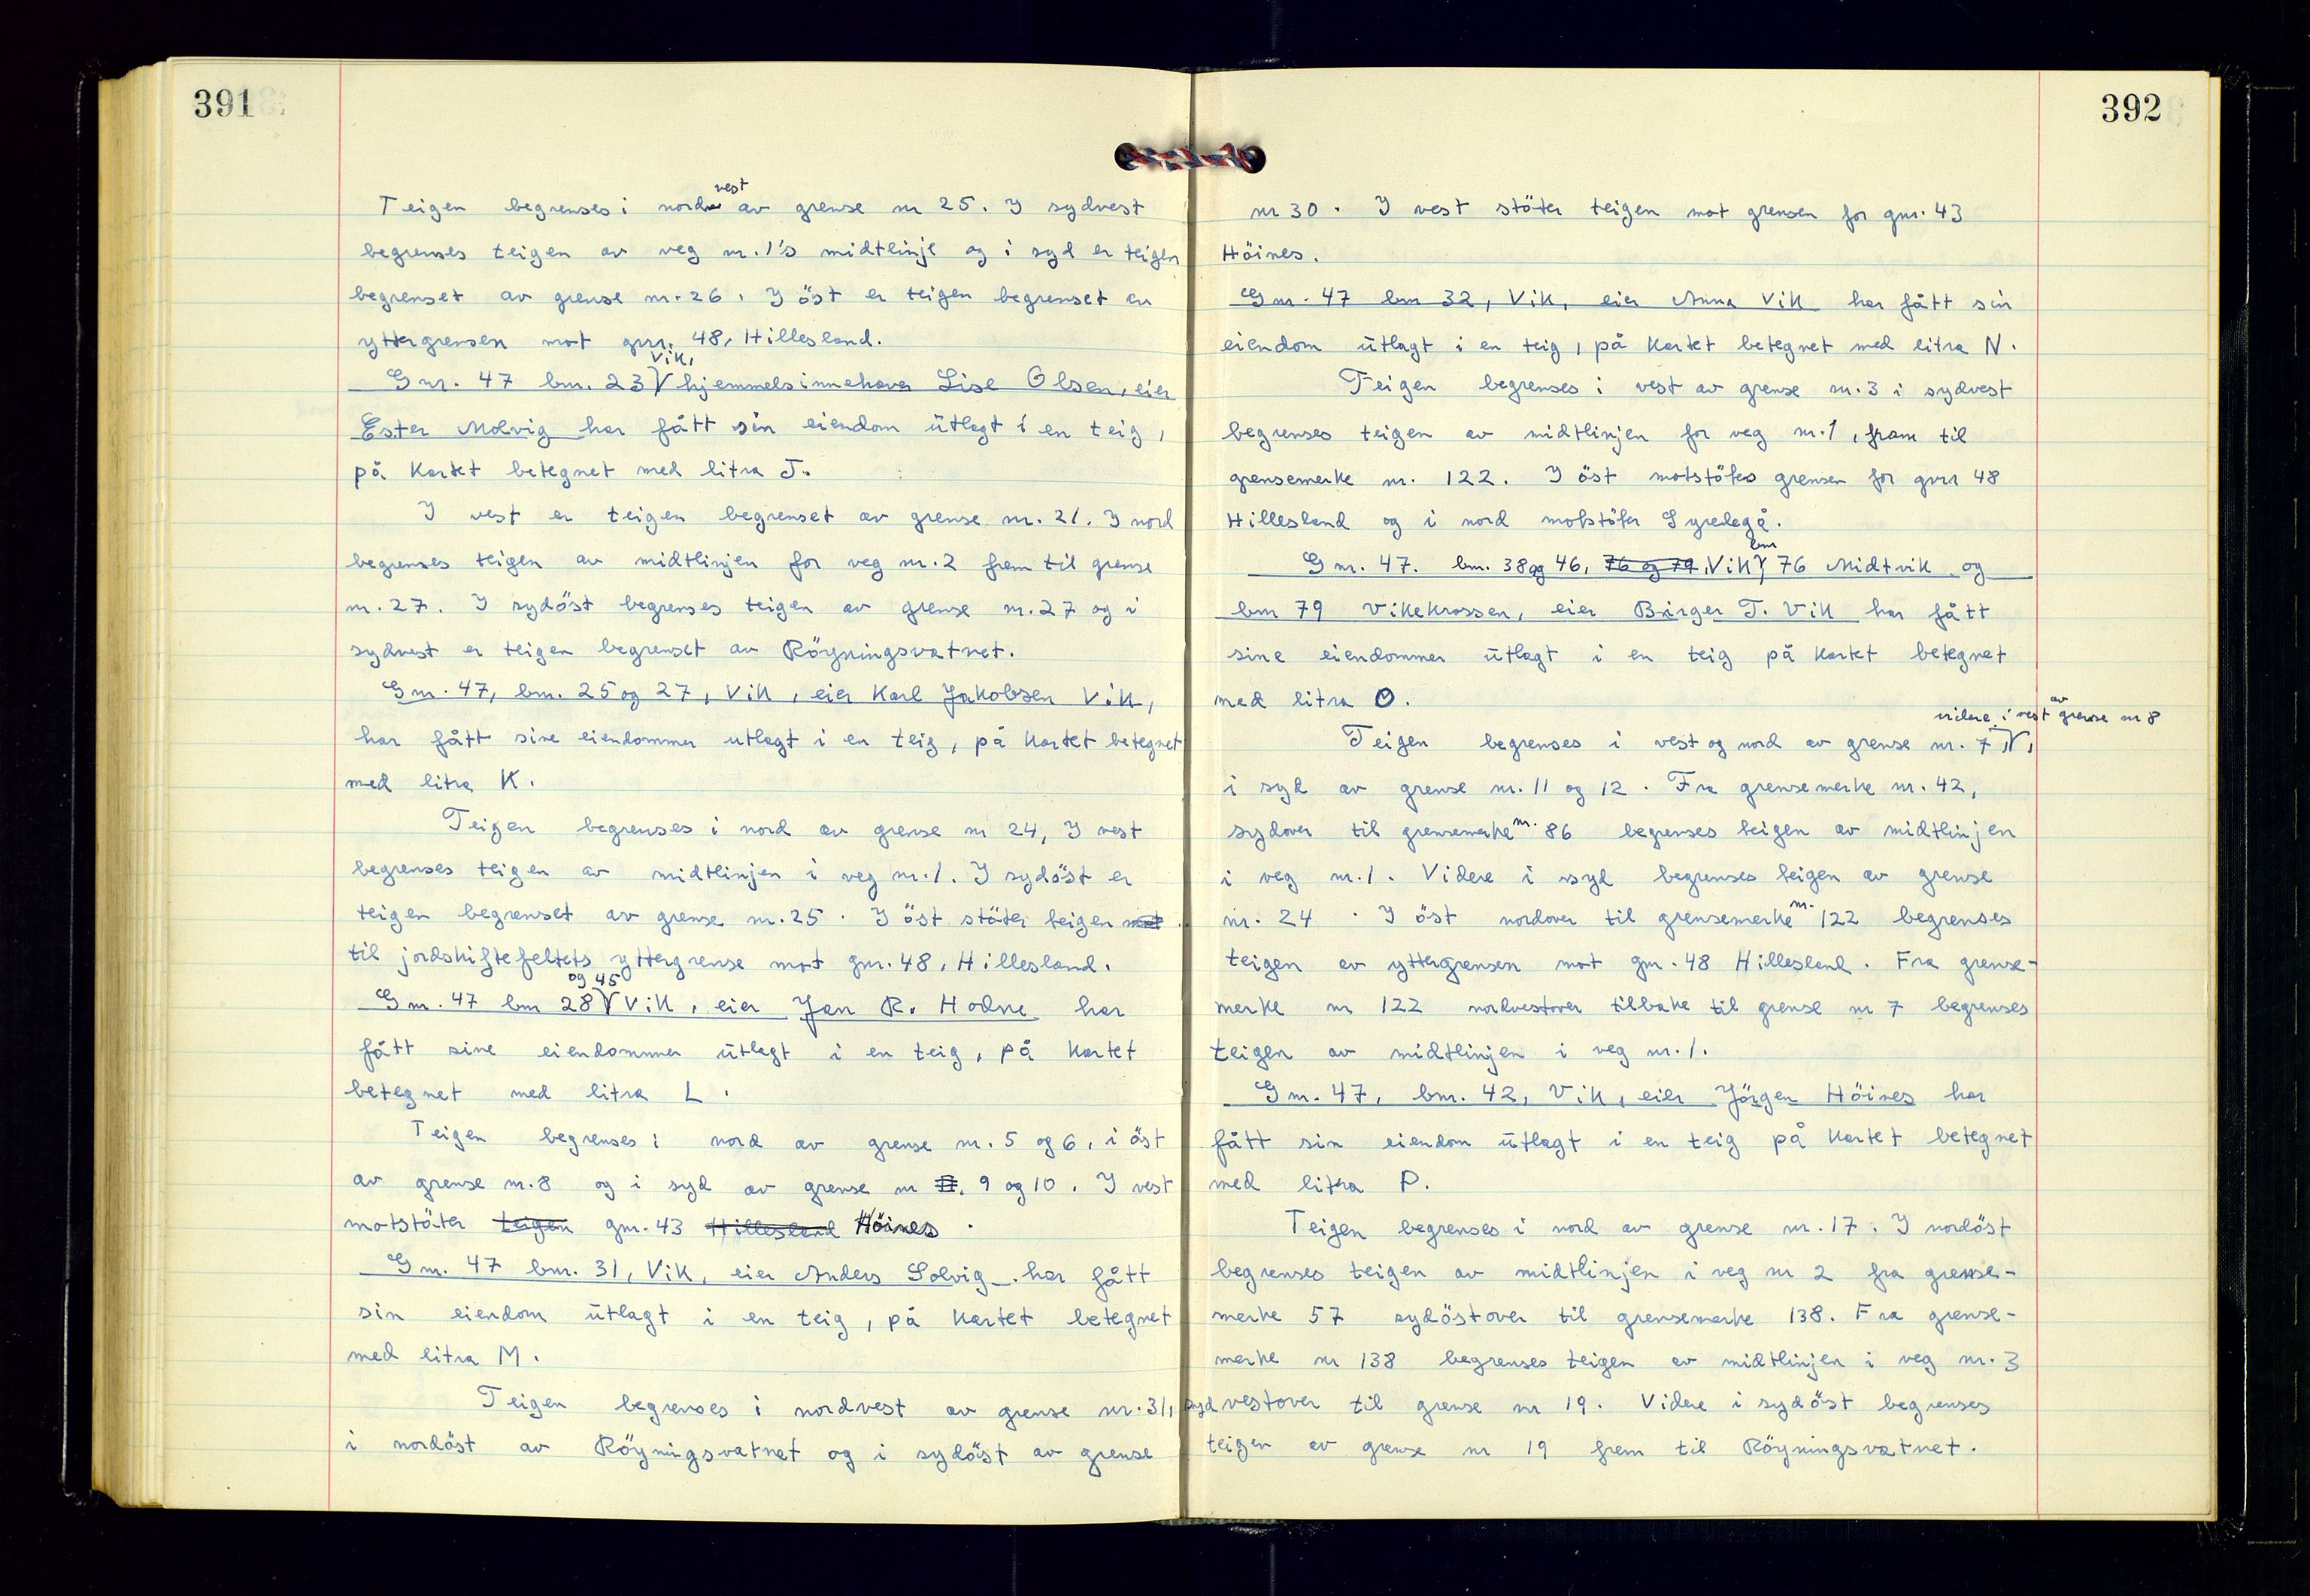 391
Teigen begrenses i nordvest av grense nr 25. I sydvest
begrenses teigen av veg nr. 1's midtlinje og i syd er teigen
begrenset av grense nr. 26. I öst er teigen begrenset av
yttergrensen mot gnr. 48, Hillesland.
Gnr. 47 bnr. 23 Vik, hjemmelsinnehaver Lise Olsen, eier
Ester Molvig har fått sin eiendom utlagt i en teig,
på kartet betegnet med litra J.
I vest er teigen begrenset av grense nr. 21. I nord
begrenses teigen av midtlinjen for veg nr. 2 frem til grense
nr. 27. I sydöst begrenses teigen av grense nr. 27 og i
sydvest er teigen begrenset av Röyningsvatnet.
Gnr. 47, bnr. 25 og 27, Vik, eier Karl Jakobsen Vik,
har fått sine eiendommer utlagt i en teig, på kartet betegnet
med litra K.
Teigen begrenses i nord av grense nr 24, I vest
begrenses teigen av midtlinjen i veg nr. 1. I sydöst er
teigen begrenset av grense nr. 25. I öst stöter teigen mot
til jordskiftefeltets yttergrense mot gnr. 48, Hillesland.
Gnr. 47 bnr 28 og 45 Vik, eier Jan R. Hodne har
fått sine eiendommer utlagt i en teig, på kartet
betegnet med litra L.
Teigen begrenses i nord av grense nr. 5 og 6, i öst
av grense nr. 8 og i syd av grense nr 9 og 10. I vest
motstöter teigen gnr. 43 Hillesland Höines.
Gnr. 47 bnr. 31, Vik, eier Anders Solvig har fått
sin eiendom utlagt i en teig, på kartet betegnet
med litra M.
Teigen begrenses i nordvest av grense nr. 31,
i nordöst av Röyningsvatnet og i sydöst av grense
392
nr 30. I vest stöter teigen mot grensen for gnr. 43
Höines.
Gnr. 47 bnr 32, Vik, eier Anna Vik har fått sin
eiendom utlagt i en teig, på kartet betegnet med litra N.
Teigen begrenses i vest av grense nr. 3 i sydvest
begrenses teigen av midtlinjen for veg nr. 1, fram til
grensemerke nr. 122. I öst motstötes grensen for gnr 48
Hillesland og i nord motstöter Syredagå.
Gnr. 47. bnr. 38 og 46, 76 og 79, Vik, bnr 76 Midtvik og
bnr 79 Vikekrossen, eier Birger T. Vik har fått
sine eiendommer utlagt i en teig på kartet betegnet
med litra O.
Teigen begrenses i vest og nord av grense nr. 7, videre i vest av grense nr 8,
i syd av grense nr. 11 og 12. Fra grensemerke nr. 42,
sydover til grensemerke nr. 86 begrenses teigen av midtlinjen
i veg nr. 1. Videre i syd begrenses teigen av grense
nr. 24. I öst nordover til grensemerke nr. 122 begrenses
teigen av yttergrensen mot gnr. 48 Hillesland. Fra grense-
merke nr 122 nordvestover tilbake til grense nr 7 begrenses
teigen av midtlinjen i veg nr. 1.
Gnr. 47, bnr. 42, Vik, eier Jörgen Höines har
fått sin eiendom utlagt i en teig på kartet betegnet
med litra P.
Teigen begrenses i nord av grense nr. 17. I nordöst
begrenses teigen av midtlinjen i veg nr 2 fra grense-
merke 57 sydöstover til grensemerke 138. Fra grense-
merke nr 138 begrenses teigen av midtlinjen i veg nr. 3
sydvestover til grense nr 19. Videre i sydöst begrenses
teigen av grense nr 19 frem til Röyningsvatnet.